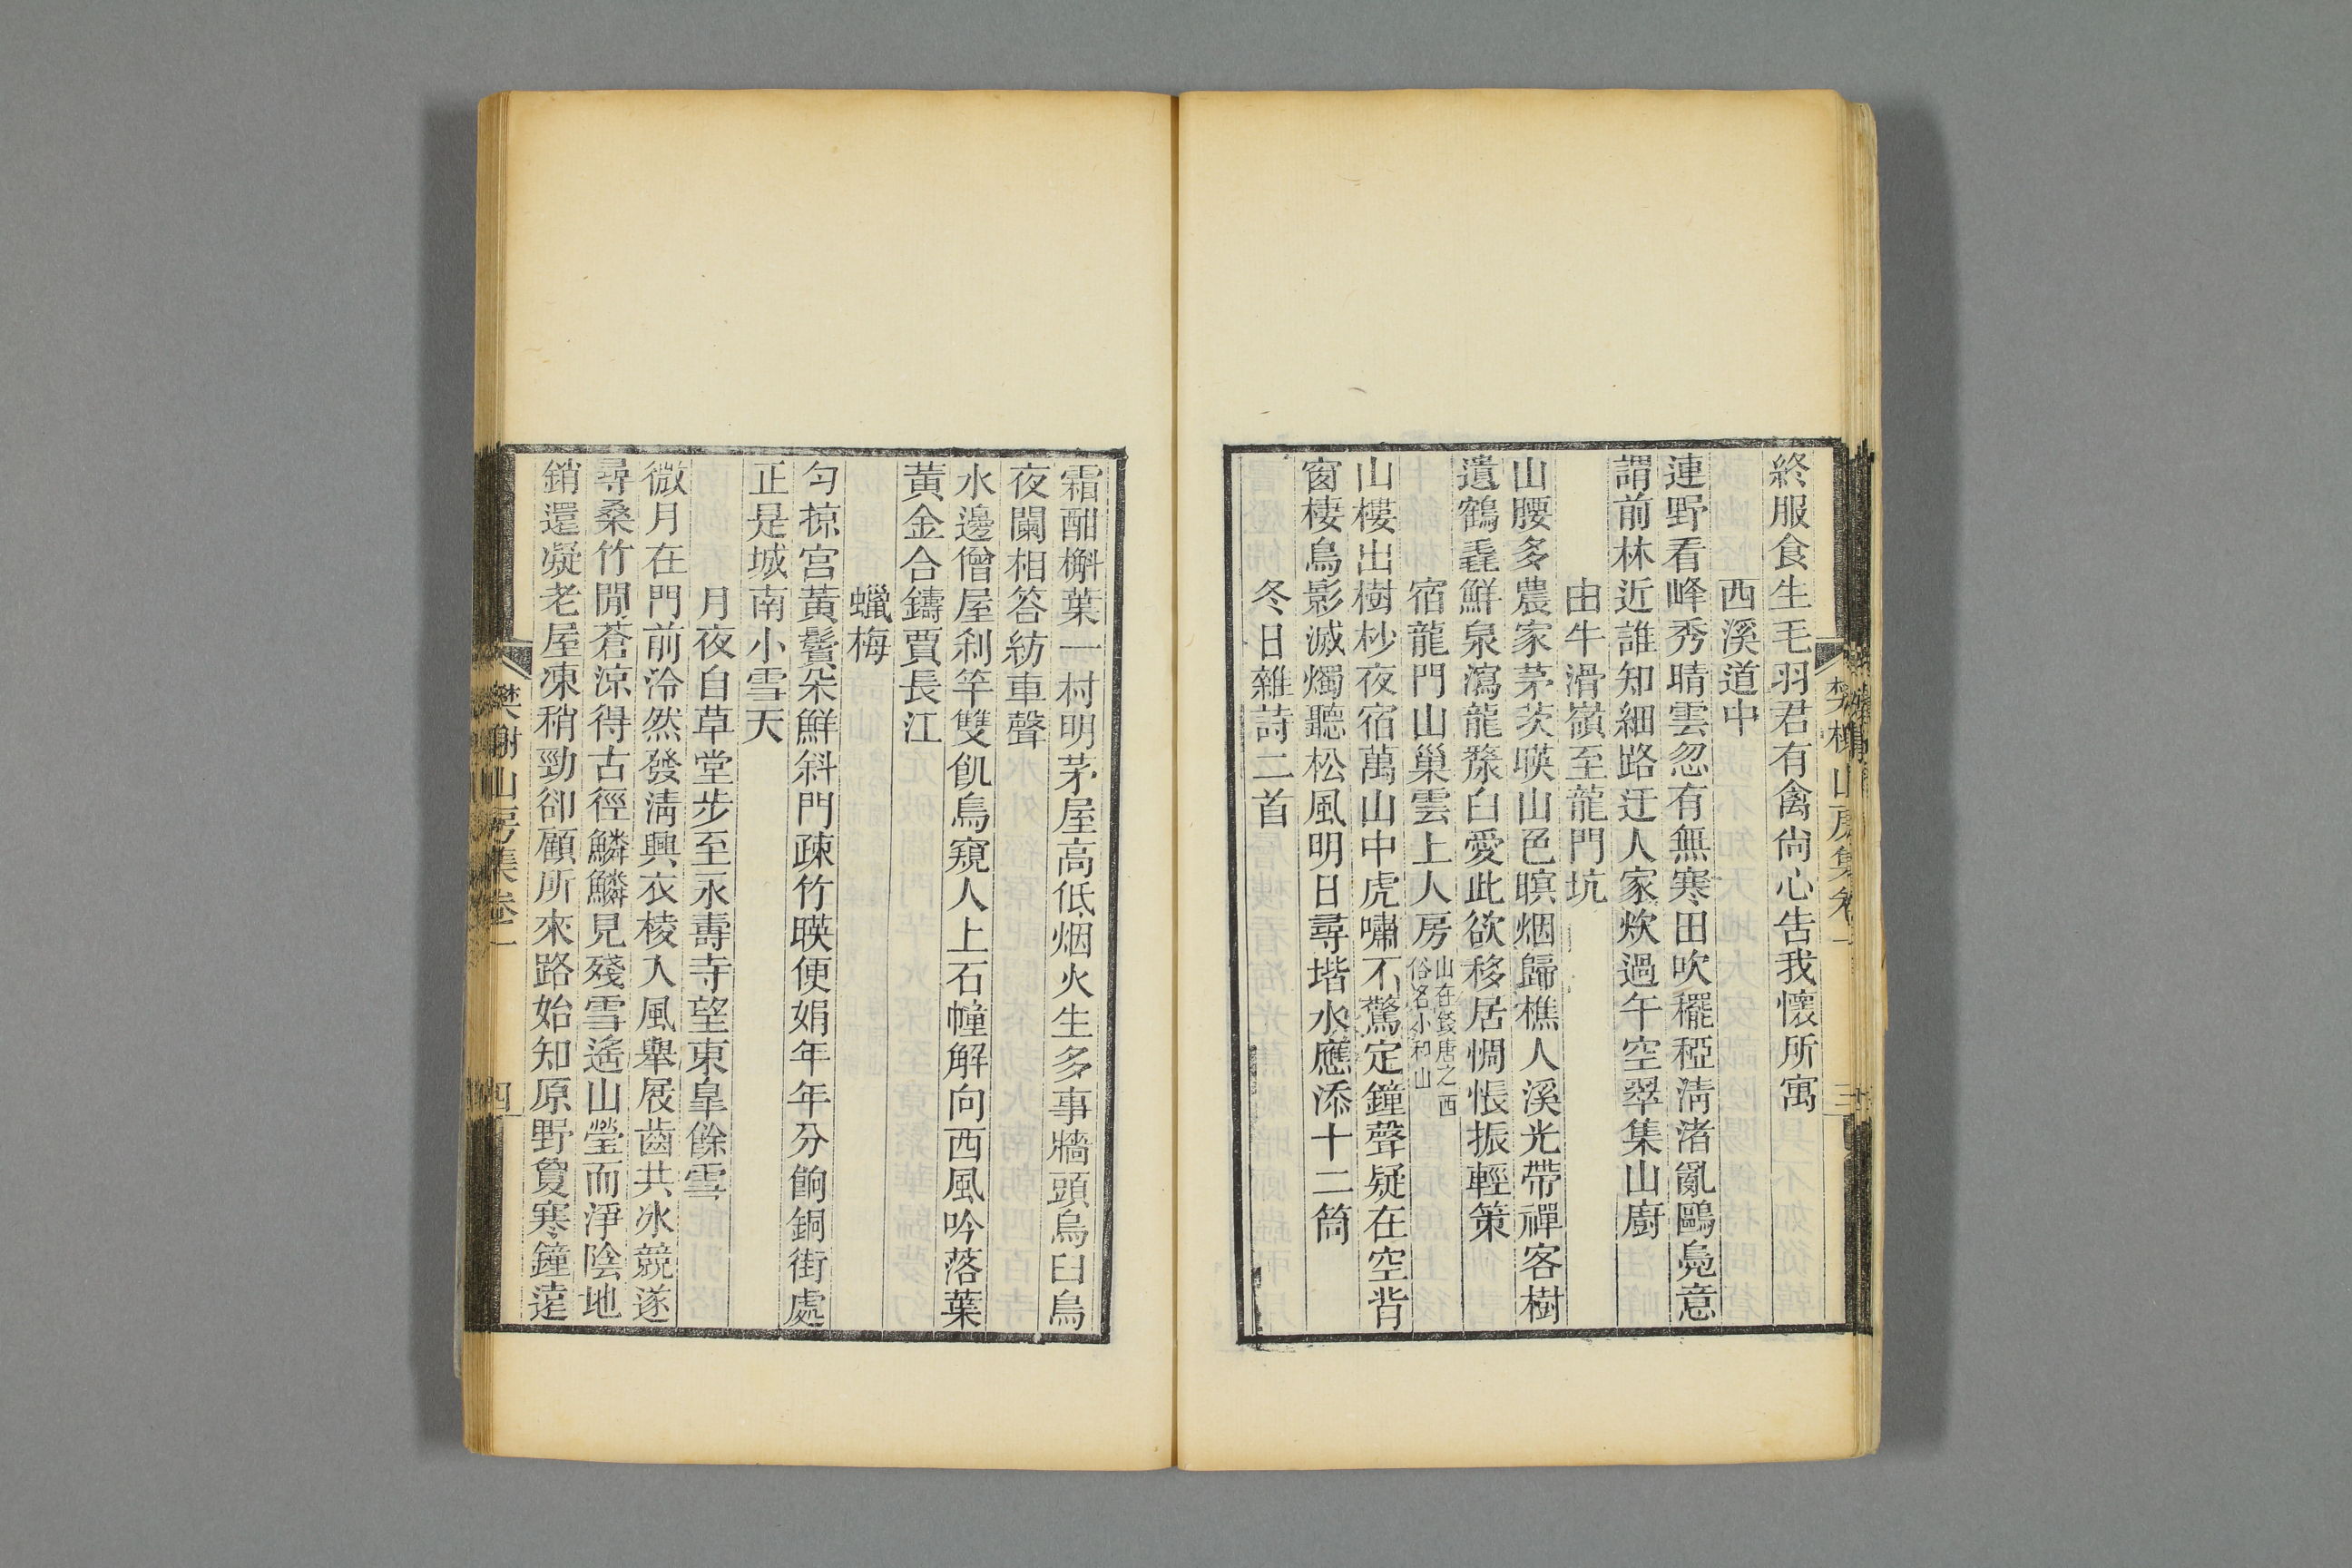 終服食生毛羽君有禽尙心告我懷所寓
西溪道中
連野看峰秀晴雲忽有無寒田吹䆉稏淸渚亂鷗鳧意
謂前林近誰知細路迂人家炊過午空翠集山廚
由牛滑嶺至龍門坑
山腰多農家茅茨暎山色暝烟歸樵人溪光帶禪客樹
遺鶴毳鮮泉瀉龍漦白愛此欲移居惆悵振輕策
宿龍門山巢雲上人房山在錢唐之西俗名小和山
山樓出樹杪夜宿萬山中虎嘯不驚定鐘聲疑在空背
窗棲鳥影滅燭聽松風明日尋堦水應添十二筒
冬日雜詩二首
樊榭山房集卷一
三
霜酣槲葉一村明茅屋高低烟火生多事牆頭烏臼鳥
夜闌相答紡車聲
水邊僧屋刹竿雙飢鳥窺人上石幢解向西風吟落葉
黃金合鑄賈長江
蠟梅
匀掠宫黃鬢朵鮮斜門疎竹暎便娟年年分餉銅街處
正是城南小雪天
月夜自草堂步至永壽寺望東臯餘雪
微月在門前泠然發淸興衣棱入風舉屐齒共冰競遂
尋桑竹閒蒼涼得古徑鱗鱗見殘雪遙山瑩而淨陰地
銷還凝老屋凍稍勁卻顧所來路始知原野敻寒鐘遠
樊榭山房集卷一
四